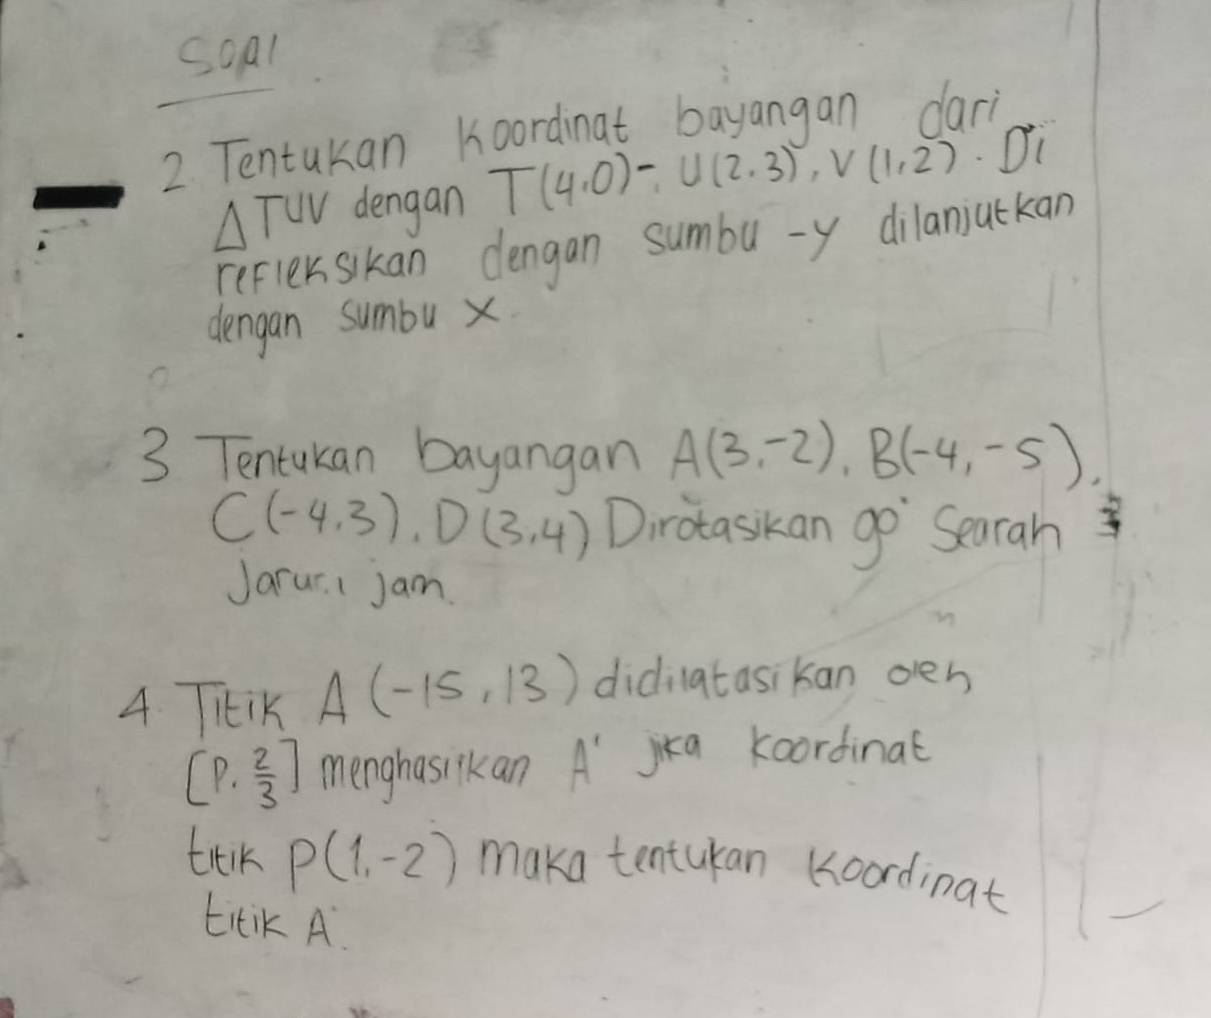 Soal
2. Tentukan Koordinat bayangan dari
Δ TUV dengan T(4,0)-, U(2,3), V(1,2). Di
refleksikan dengan sumbu -y dilanjutkan
dengan sumbu x
3 Tentukan bayangan A(3,-2), B(-4,-5),
C(-4,3), D(3,4) Dirotasikan 90° Searah
Jarum jam.
4. Titik A (-15, 13) didilatasikan oleh
[P. 2/3] menghasilkan A' jika koordinat
titik P(1,-2) maka tentukan koordinat
titik A'.